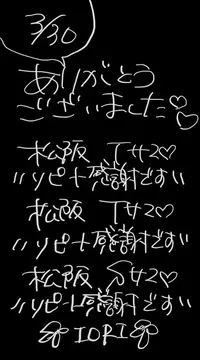 3/30
ありがとう
ございました♡♡
松阪 Tサス♡
"リピート感謝です"
松阪 Tサス♡
"リピート感謝です"
松阪 Sサス♡
"リピート感謝です"
IORI